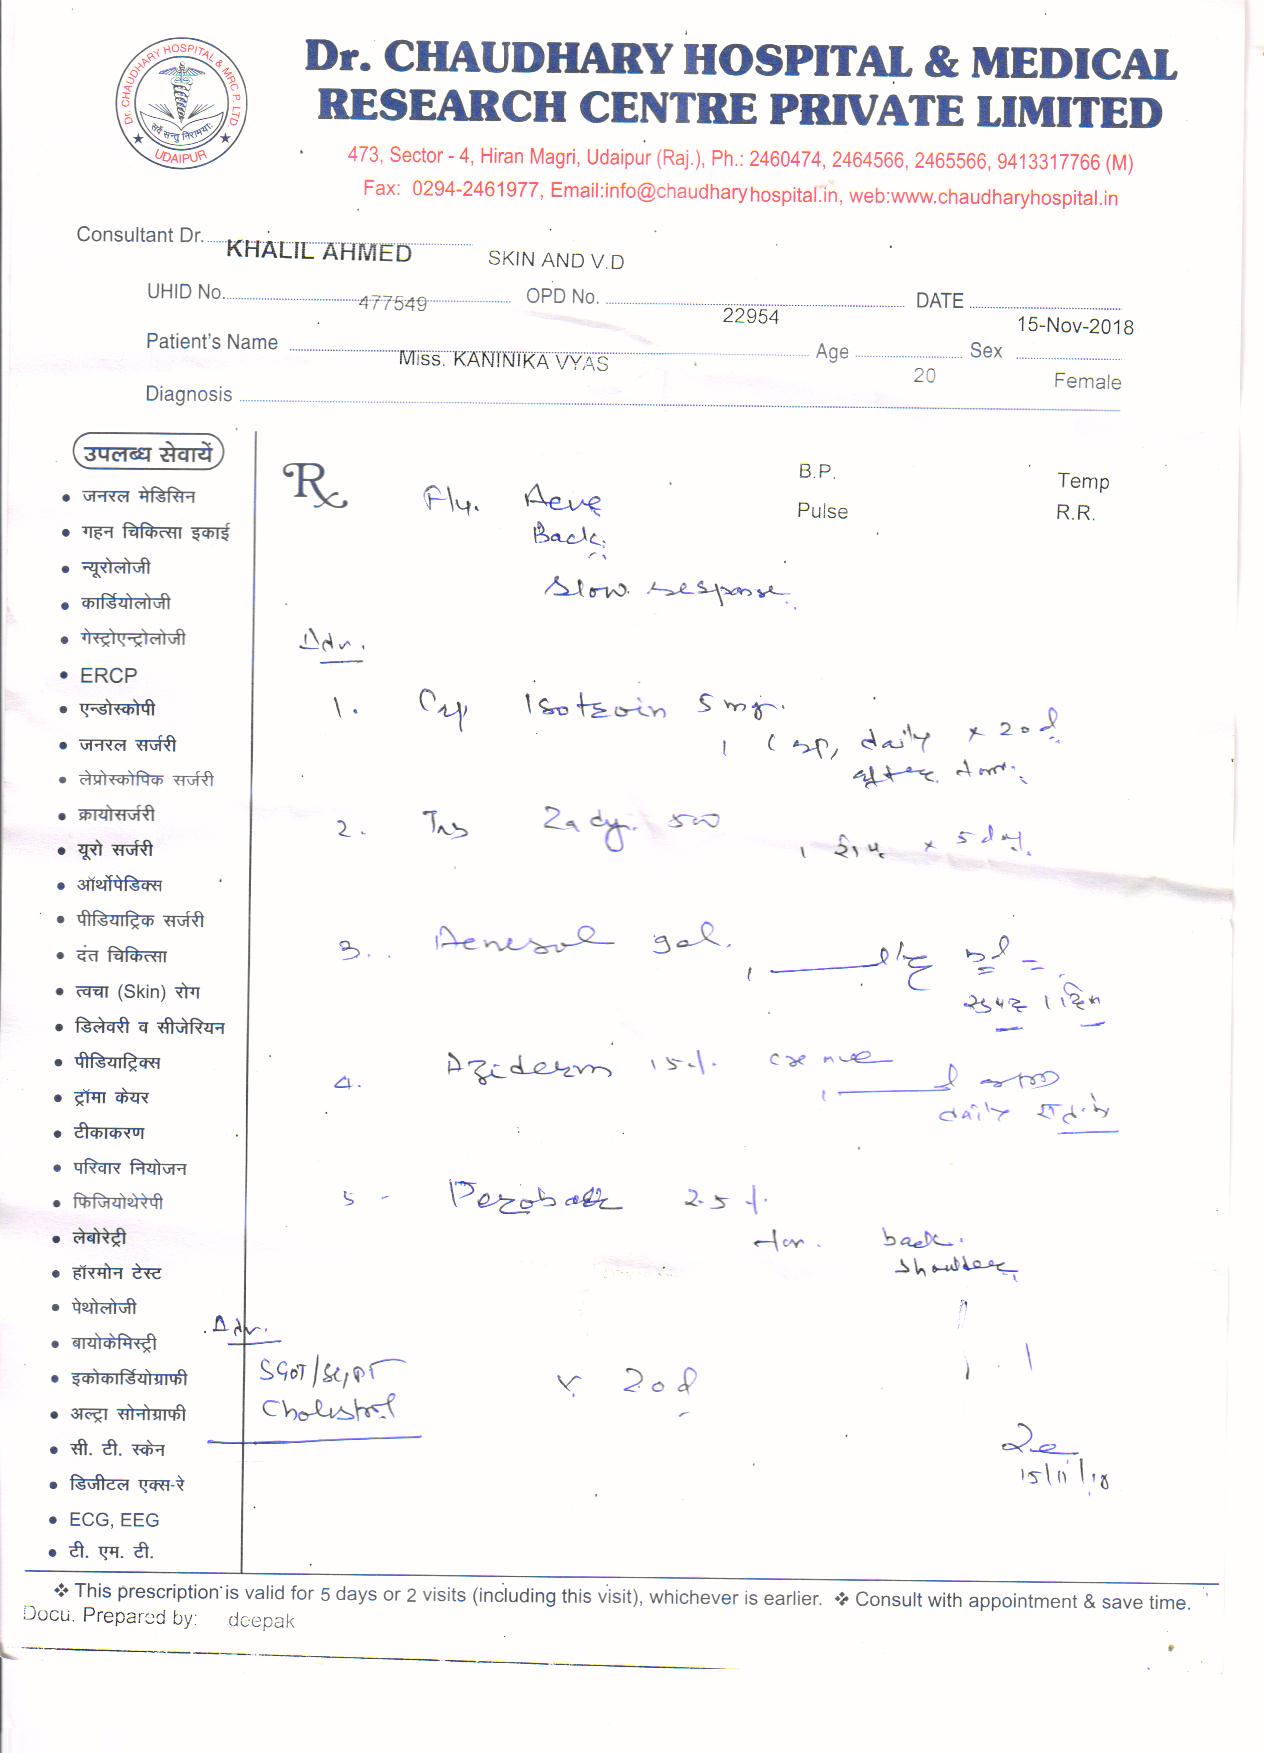 Dr. CHAUDHARY HOSPITAL & MEDICAL
RESEARCH CENTRE PRIVATE LIMITED
Dr. CHAUDHARY HOSPITAL & MRC P. LTD
सर्वे सन्तु निरामयाः
UDAIPUR
473, Sector - 4, Hiran Magri, Udaipur (Raj.), Ph.: 2460474, 2464566, 2465566, 9413317766 (M)
Fax: 0294-2461977, Email:info@chaudharyhospital.in, web:www.chaudharyhospital.in
Consultant Dr. KHALIL AHMED SKIN AND V.D
UHID No. 477549 OPD No. 22954 DATE 15-Nov-2018
Patient's Name Miss. KANINIKA VYAS Age 20 Sex Female
Diagnosis
उपलब्ध सेवायें
• जनरल मेडिसिन
• गहन चिकित्सा इकाई
• न्यूरोलोजी
• कार्डियोलोजी
• गेस्ट्रोएन्ट्रोलोजी
• ERCP
• एन्डोस्कोपी
• जनरल सर्जरी
• लेप्रोस्कोपिक सर्जरी
• क्रायोसर्जरी
• यूरो सर्जरी
• ऑर्थोपेडिक्स
• पीडियाट्रिक सर्जरी
• दंत चिकित्सा
• त्वचा (Skin) रोग
• डिलेवरी व सीजेरियन
• पीडियाट्रिक्स
• ट्रॉमा केयर
• टीकाकरण
• परिवार नियोजन
• फिजियोथेरेपी
• लेबोरेट्री
• हॉरमोन टेस्ट
• पेथोलोजी
• बायोकेमिस्ट्री
• इकोकार्डियोग्राफी
• अल्ट्रा सोनोग्राफी
• सी. टी. स्केन
• डिजीटल एक्स-रे
• ECG, EEG
• टी. एम. टी.
Rx
B.P. Temp
Pulse R.R.
Acne
Back
Slow response
Adv.
1. Cap Isotroin 5 mg.
1 Cap, daily x 20d
after
2. Tab Zady 500
1 x 5 day
3. Acnesol gel.
4. Aziderm 15% creme
daily
5 - Perobar 2.5%
for back
shoulder
Adv.
SGOT/SGPT
Cholestrol
x 20d
15/11/18
❖ This prescription is valid for 5 days or 2 visits (including this visit), whichever is earlier. ❖ Consult with appointment & save time.
Docu. Prepared by: deepak